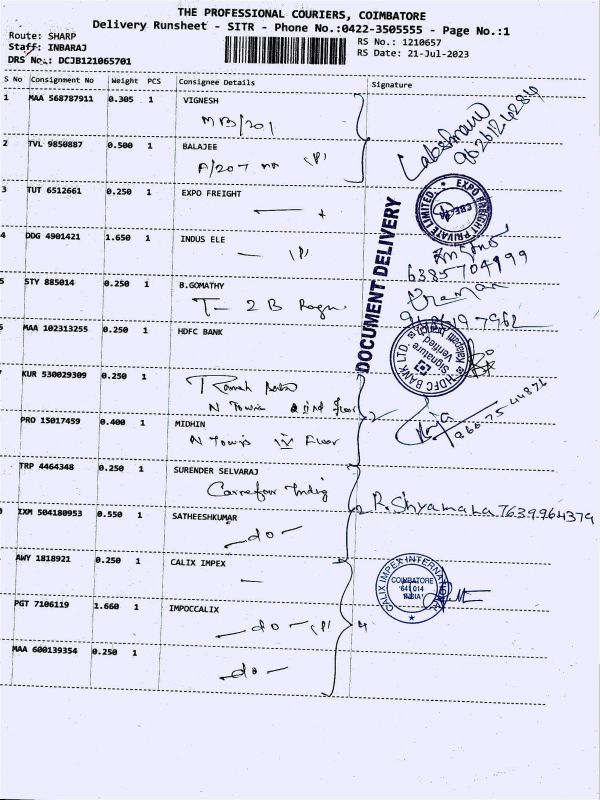 THE PROFESSIONAL COURIERS, COIMBATORE
Delivery Runsheet - SITR - Phone No.:0422-3505555 - Page No.:1
Route: SHARP
Staff: INBARAJ
DRS No.: DCJB121065701
RS No.: 1210657
RS Date: 21-Jul-2023
S No Consignment No Weight PCS Consignee Details Signature
1 MAA 568787911 0.305 1 VIGNESH
MB/201
2 TVL 9850887 0.500 1 BALAJEE
A/207
Lakshmanan
3 TUT 6512661 0.250 1 EXPO FREIGHT
EXPO FREIGHT PRIVATE LIMITED
CBE-14
4 DDG 4901421 1.650 1 INDUS ELE
6385704999
DOCUMENT DELIVERY
STY 885014 0.250 1 B.GOMATHY
T- 2 B
MAA 102313255 0.250 1 HDFC BANK
HDFC BANK LTD.
Signature
Verified
KUR 530029309 0.250 1
Ramesh
N Towers floor
PRO 15017459 0.400 1 MIDHIN
N Towers IV Floor
2
TRP 4464348 0.250 1 SURENDER SELVARAJ
Carrefour India
IXM 504180953 0.550 1 SATHEESHKUMAR
- do -
2
R.Shyamala 7639964379
AWY 1818921 0.250 1 CALIX IMPEX
CALIX IMPEX INTERNATIONAL
COIMBATORE
641 014
INDIA
PGT 7106119 1.660 1 IMPOCCALIX
- do - (P)
4
MAA 600139354 0.250 1
- do -